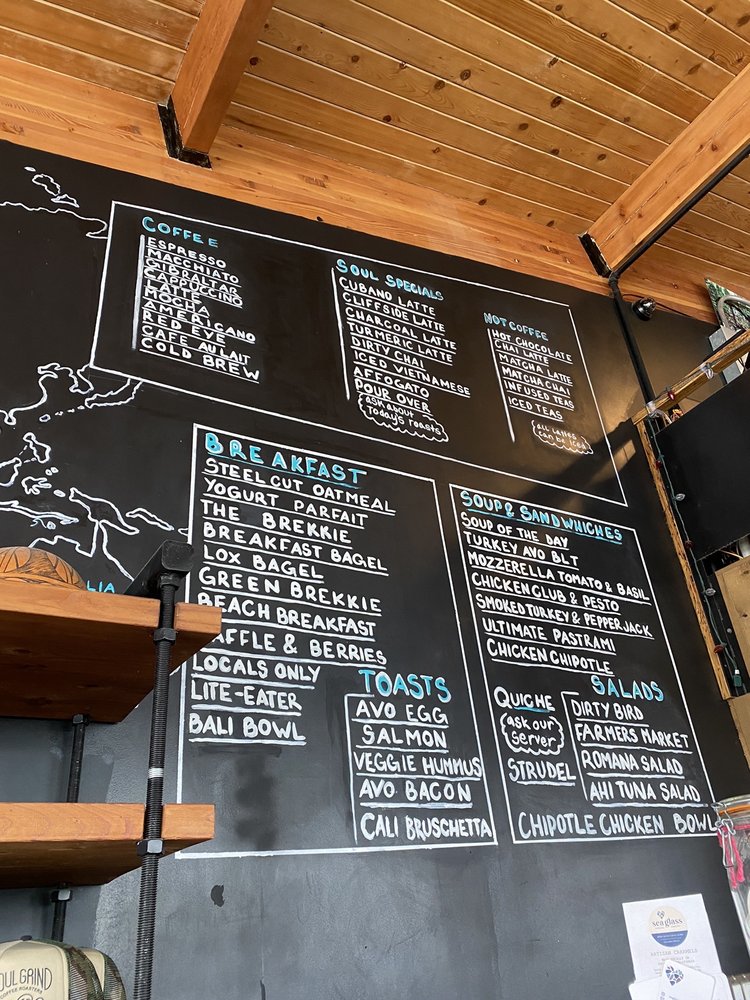 COFFEE
ESPRESSO
MACCHIATO
GIBRALTAR
CAPPUCCINO
LATTE
MOCHA
AMERICANO
RED EYE
CAFE AU LAIT
COLD BREW
SOUL SPECIALS
CUBANO LATTE
CLIFFSIDE LATTE
CHARCOAL LATTE
TURMERIC LATTE
DIRTY CHAI
ICED VIETNAMESE
AFFOGATO
POUR OVER
ask about
Today's roasts
NOT COFFEE
HOT CHOCOLATE
CHAI LATTE
MATCHA LATTE
MATCHA CHAI
INFUSED TEAS
ICED TEAS
all lattes
can be iced
BREAKFAST
STEEL CUT OATMEAL
YOGURT PARFAIT
THE BREKKIE
BREAKFAST BAGEL
LOX BAGEL
GREEN BREKKIE
BEACH BREAKFAST
AFFLE & BERRIES
LOCALS ONLY
LITE-EATER
BALI BOWL
TOASTS
AVO EGG
SALMON
VEGGIE HUMMUS
AVO BACON
CALI BRUSCHETTA
SOUP & SANDWHICHES
SOUP OF THE DAY
TURKEY AVO BLT
MOZZERELLA TOMATO & BASIL
CHICKEN CLUB & PESTO
SMOKED TURKEY & PEPPERJACK
ULTIMATE PASTRAMI
CHICKEN CHIPOTLE
QUICHE
ask our
server
STRUDEL
SALADS
DIRTY BIRD
FARMERS MARKET
ROMANA SALAD
AHI TUNA SALAD
CHIPOTLE CHICKEN BOWL
LIA
OUL GRIND
COFFEE ROASTERS
sea glass
ARTISAN CARAMELS